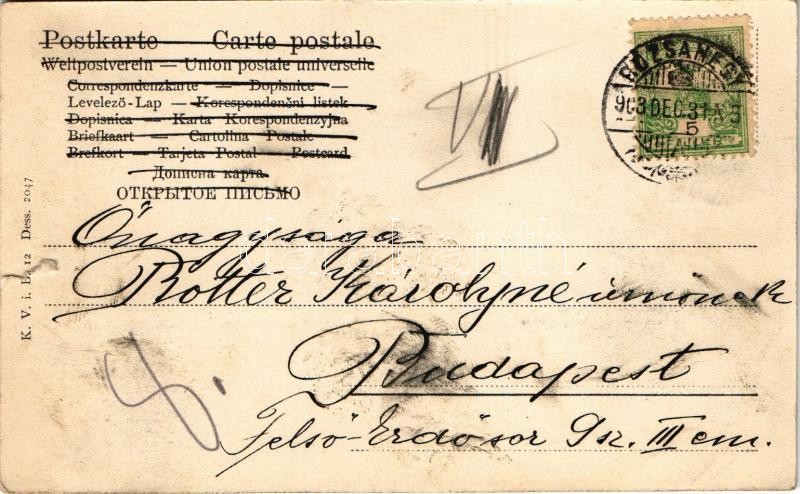 Postkarte — Carte postale
Weltpostverein — Union postale universelle
Correspondenzkarte — Dopisnice —
Levelező-Lap — Korespondenční lístek
Dopisnica — Karta Korespondenzyjna
Briefkaart — Cartolina Postale
Brefkort — Tarjeta Postal — Postcard
Дописна карта
ОТКРЫТОЕ ПИСЬМО
VII
903 DEC. 31
5
K. V. i. B. 12 Dess. 2047
Őnagysága
Rotter Károlyné úrnőnek
Budapest
8.
Felső-Erdősor 9sz. III em.